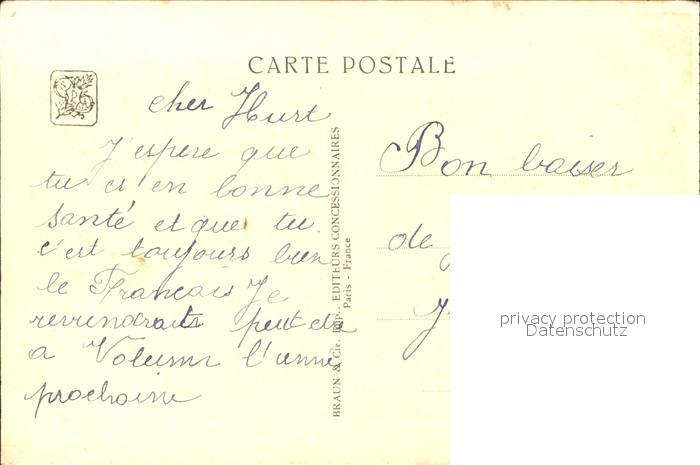 CARTE POSTALE
cher Hurt
J'espere que
tu es en bonne
santé et que tu
c'est toujours bien
le Francais Je
revviendrait peut etre
a Volumr l'anne
prochaine
BRAUN & Cie, Imp., EDITEURS CONCESSIONNAIRES
Paris - France
Bon baiser
de
privacy protection
Datenschutz